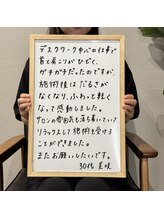 デスクワーク中心の仕事で
首と肩こりがひどく、
ガチガチだったのですが、
施術後はだるさが
なくなり、ふわっと軽く
なって感動しました。
サロンの雰囲気も落ち着いていて
リラックスして施術を受ける
ことができました。
またお願いしたいです。
30代 美咲